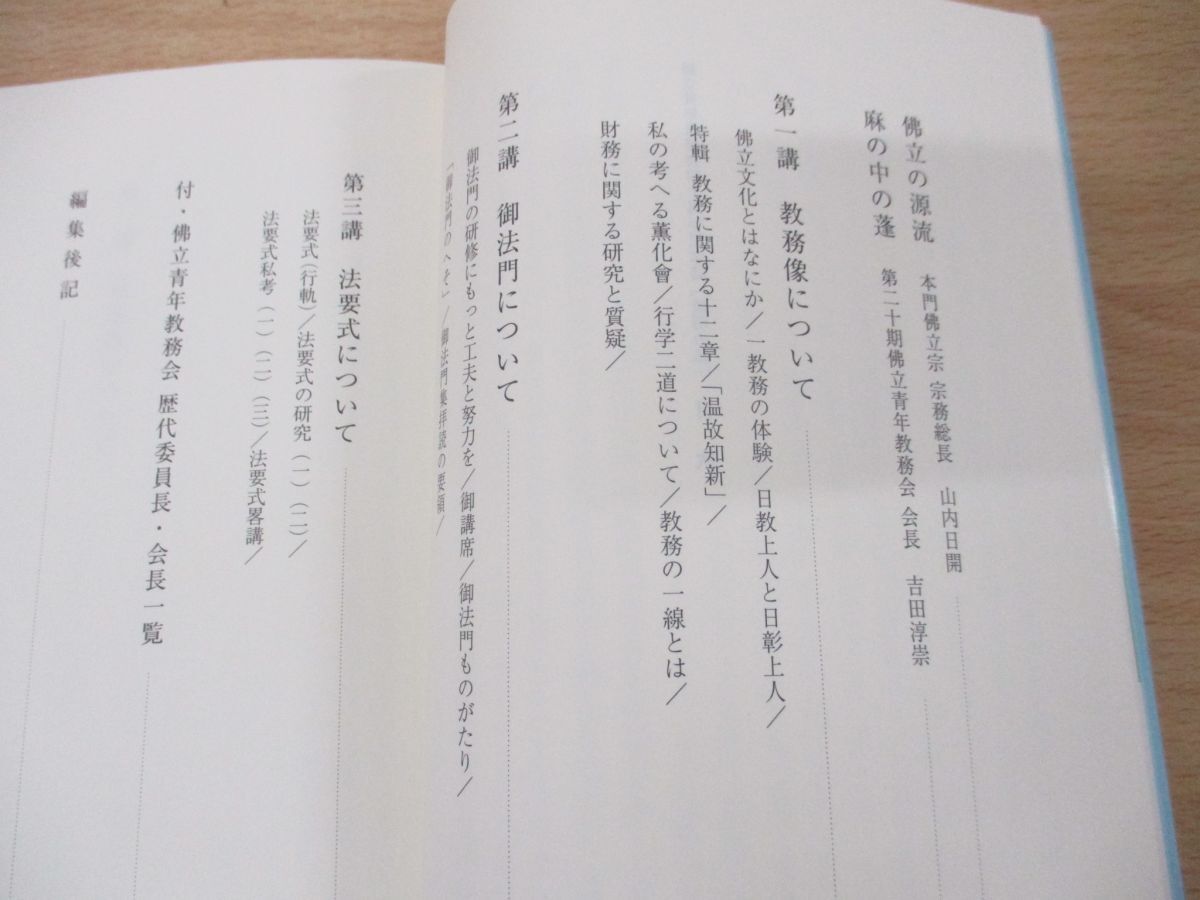 佛立の源流　本門佛立宗 宗務総長　山内日開
麻の中の蓬　第二十期佛立青年教務会 会長　吉田淳崇
第一講　教務像について
佛立文化とはなにか／一教務の体験／日教上人と日彰上人／
特輯 教務に関する十二章／「温故知新」／
私の考へる薫化會／行学二道について／教務の一線とは／
財務に関する研究と質疑／
第二講　御法門について
御法門の研修にもっと工夫と努力を／御講席／御法門ものがたり／
「御法門のへそ」／御法門集拝読の要領／
第三講　法要式について
法要式（行軌）／法要式の研究（一）（二）／
法要式私考（一）（二）（三）／法要式畧講／
付・佛立青年教務会 歴代委員長・会長一覧
編集後記